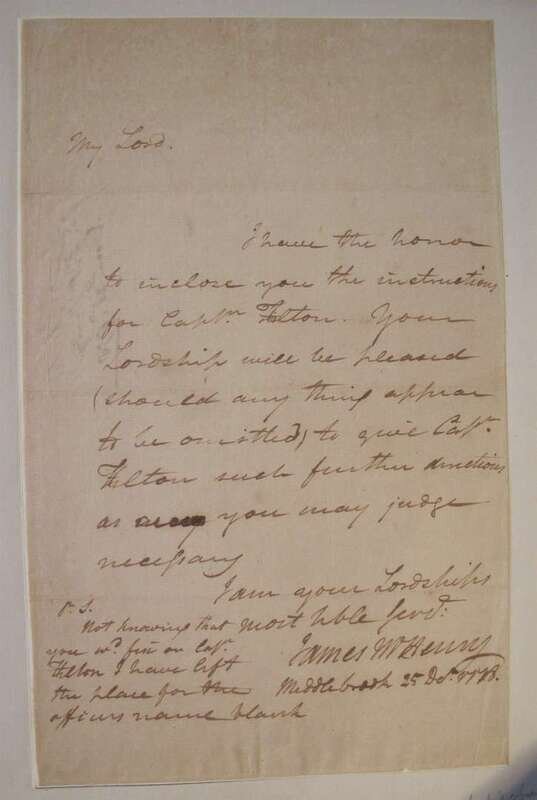 My Lord.
I have the honor
to inclose you the instructions
for Captn. Felton. Your
Lordship will be pleased
(should any thing appear
to be omitted) to give Capn.
Felton such further directions
as you may judge
necessary
I am your Lordships
most hble Servt.
James McHenry
Middlebrook 25 Decr. 1778.
P. S.
Not knowing that
you wd. fix on Capn.
Felton I have left
the place for the
officers name blank